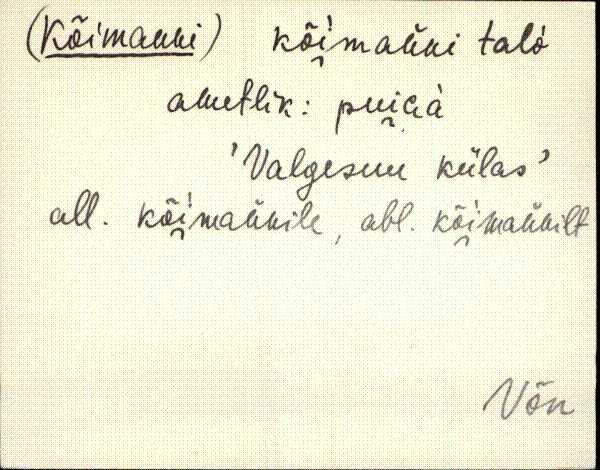 (Kõimanni) kõi̯mań̀ni talò
ametlik:
'Valgesuu külas'
all. kõi̯mań̀nile, abl. kõi̯mań̀nilt
Võn